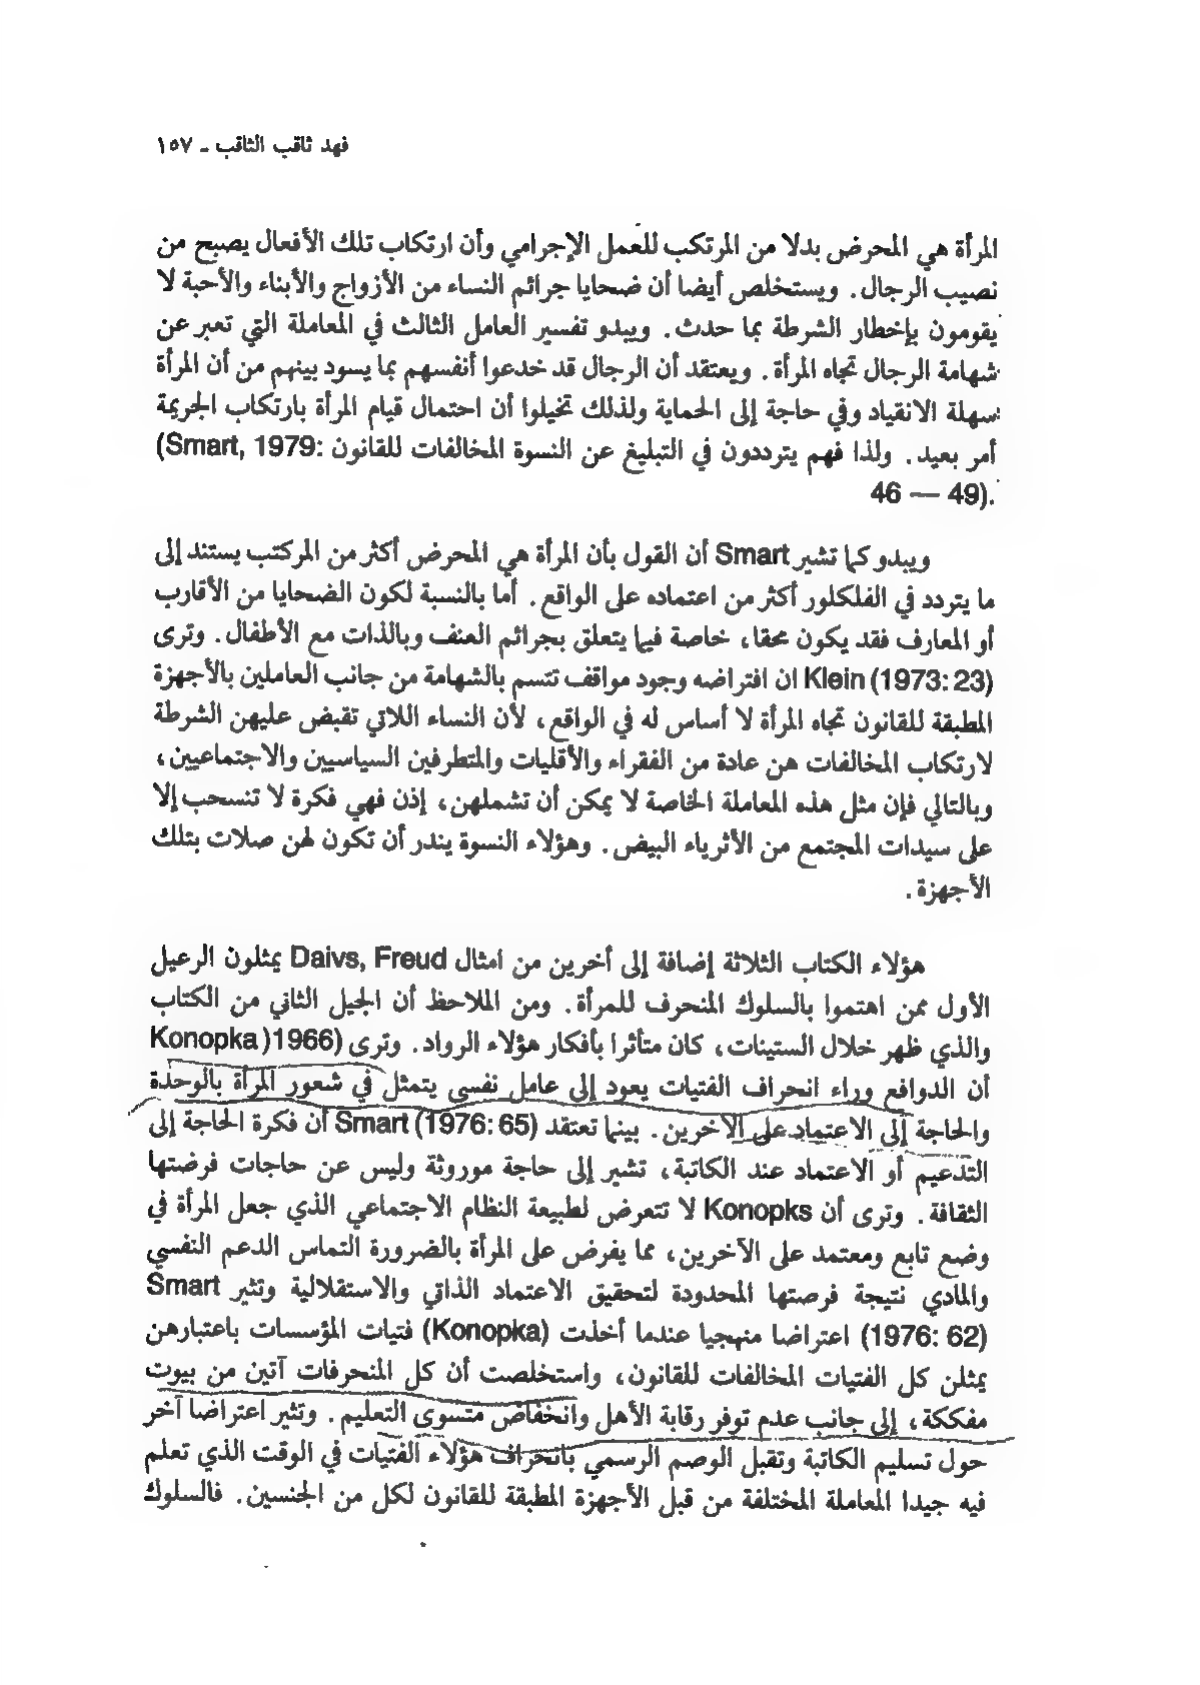 فهد ثاقب الثاقب ـ ١٥٧
المرأة هي المحرض بدلا من المرتكب للعمل الإجرامي وأن ارتكاب تلك الأفعال يصبح من
نصيب الرجال. ويستخلص أيضا أن ضحايا جرائم النساء من الأزواج والأبناء والأحبة لا
يقومون بإخطار الشرطة بما حدث. ويبدو تفسير العامل الثالث في المعاملة التي تعبر عن
شهامة الرجال تجاه المرأة. ويعتقد أن الرجال قد خدعوا أنفسهم بما يسود بينهم من أن المرأة
سهلة الانقياد وفي حاجة إلى الحماية ولذلك تخيلوا أن احتمال قيام المرأة بارتكاب الجريمة
أمر بعيد. ولذا فهم يترددون في التبليغ عن النسوة المخالفات للقانون (Smart, 1979:
46 — 49).
ويبدو كما تشير Smart أن القول بأن المرأة هي المحرض أكثر من المركتب يستند إلى
ما يتردد في الفلكلور أكثر من اعتماده على الواقع. أما بالنسبة لكون الضحايا من الأقارب
أو المعارف فقد يكون محقا، خاصة فيما يتعلق بجرائم العنف وبالذات مع الأطفال. وترى
Klein (1973: 23) ان افتراضه وجود مواقف تتسم بالشهامة من جانب العاملين بالأجهزة
المطبقة للقانون تجاه المرأة لا أساس له في الواقع، لأن النساء اللاتي تقبض عليهن الشرطة
لارتكاب المخالفات هن عادة من الفقراء والأقليات والمتطرفين السياسيين والاجتماعيين،
وبالتالي فإن مثل هذه المعاملة الخاصة لا يمكن أن تشملهن، إذن فهي فكرة لا تنسحب إلا
على سيدات المجتمع من الأثرياء البيض. وهؤلاء النسوة يندر أن تكون لهن صلات بتلك
الأجهزة.
هؤلاء الكتاب الثلاثة إضافة إلى أخرين من امثال Daivs, Freud يمثلون الرعيل
الأول ممن اهتموا بالسلوك المنحرف للمرأة. ومن الملاحظ أن الجيل الثاني من الكتاب
والذي ظهر خلال الستينات، كان متأثرا بأفكار هؤلاء الرواد. وترى Konopka )1966(
أن الدوافع وراء انحراف الفتيات يعود إلى عامل نفسي يتمثل في شعور المرأة بالوحدة
والحاجة إلى الاعتماد على الآخرين. بينما تعتقد Smart (1976: 65) أن فكرة الحاجة إلى
التدعيم أو الاعتماد عند الكاتبة، تشير إلى حاجة موروثة وليس عن حاجات فرضتها
الثقافة. وترى أن Konopks لا تتعرض لطبيعة النظام الاجتماعي الذي جعل المرأة في
وضع تابع ومعتمد على الآخرين، مما يفرض على المرأة بالضرورة التماس الدعم النفسي
والمادي نتيجة فرصتها المحدودة لتحقيق الاعتماد الذاتي والاستقلالية وتثير Smart
(1976: 62) اعتراضا منهجيا عندما أخذت (Konopka) فتيات المؤسسات باعتبارهن
يمثلن كل الفتيات المخالفات للقانون، واستخلصت أن كل المنحرفات آتين من بيوت
مفككة، إلى جانب عدم توفر رقابة الأهل وانخفاض متسوى التعليم. وتثير اعتراضا آخر
حول تسليم الكاتبة وتقبل الوصم الرسمي بانحراف هؤلاء الفتيات في الوقت الذي تعلم
فيه جيدا المعاملة المختلفة من قبل الأجهزة المطبقة للقانون لكل من الجنسين. فالسلوك